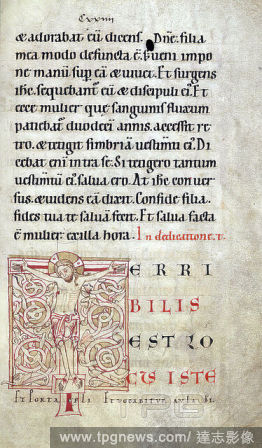 Cxxiiij
& adorabat eū dicens. Dne. filia
mea modo defuncta ē. s; ueni impo
ne manū sup eā & uiuet. Et surgens
ihc. sequebant̄ eū & discipuli ei. Et
ecce mulier que sanguinis fluxum
patiebat̄ duodecī annis. accessit re
tro. & tetigit fimbriā uestimti ei. Di
cebat eni intra se. Si tetigero tantum
uestimtū ei. salua ero. At ihc conuer
sus. & uidens eā dixit. Confide filia.
fides tua te saluā fecit. Et salua facta
ē mulier ex illa hora. In dedicatione. t.
T ERRI
BILIS
EST LO
CUS ISTE
et porta celi et uocabitur aula di.
www.tpgnews.com / 達志影像